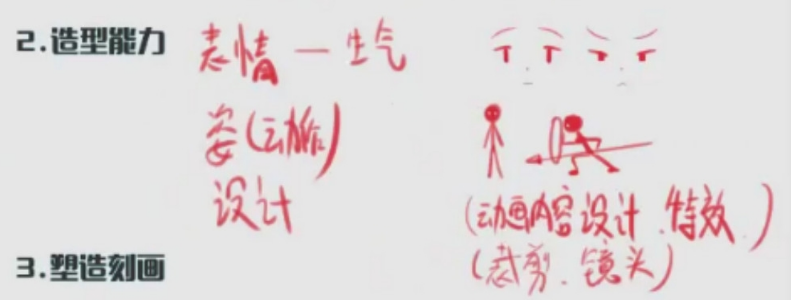 2.造型能力 表情 — 生气
姿(动作)
设计
(动画内容设计、特效、)
3.塑造刻画
(裁剪、镜头)